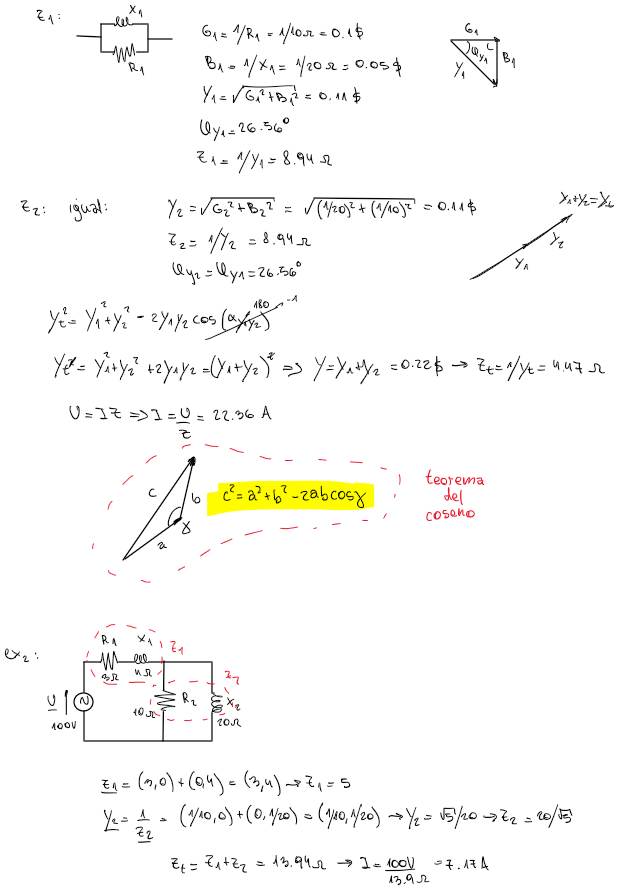 Z1:
X1
R1
G1 = 1/R1 = 1/10Ω = 0.1$
B1 = 1/X1 = 1/20Ω = 0.05$
Y1 = √G1²+B1² = 0.11$
φY1 = 26.56°
Z1 = 1/Y1 = 8.94 Ω
G1
φY1
B1
Y1
Z2: igual:
Y2 = √G2²+B2² = √(1/20)²+(1/10)² = 0.11$
Z2 = 1/Y2 = 8.94Ω
φY2 = φY1 = 26.56°
Y1+Y2=Yt
Y2
Y1
Yt² = Y1²+Y2² - 2Y1Y2 cos(αY1Y2) 180 -1
Yt² = Y1²+Y2²+2Y1Y2 = (Y1+Y2)² => Y=Y1+Y2 = 0.22$ → Zt = 1/Yt = 4.47 Ω
U = IZ => I = U/Z = 22.36 A
c
b
a
γ
c² = a²+b²-2abcosγ
teorema
del
coseno
ex2:
R1
X1
Z1
3Ω
4Ω
Z2
U
100V
N
R2
10Ω
X2
20Ω
Z1 = (3,0)+(0,4) = (3,4) → Z1 = 5
Y2 = 1/Z2 = (1/10,0)+(0,1/20) = (1/10,1/20) → Y2 = √5/20 → Z2 = 20/√5
Zt = Z1+Z2 = 13.94Ω → I = 100V/13.9Ω = 7.17A